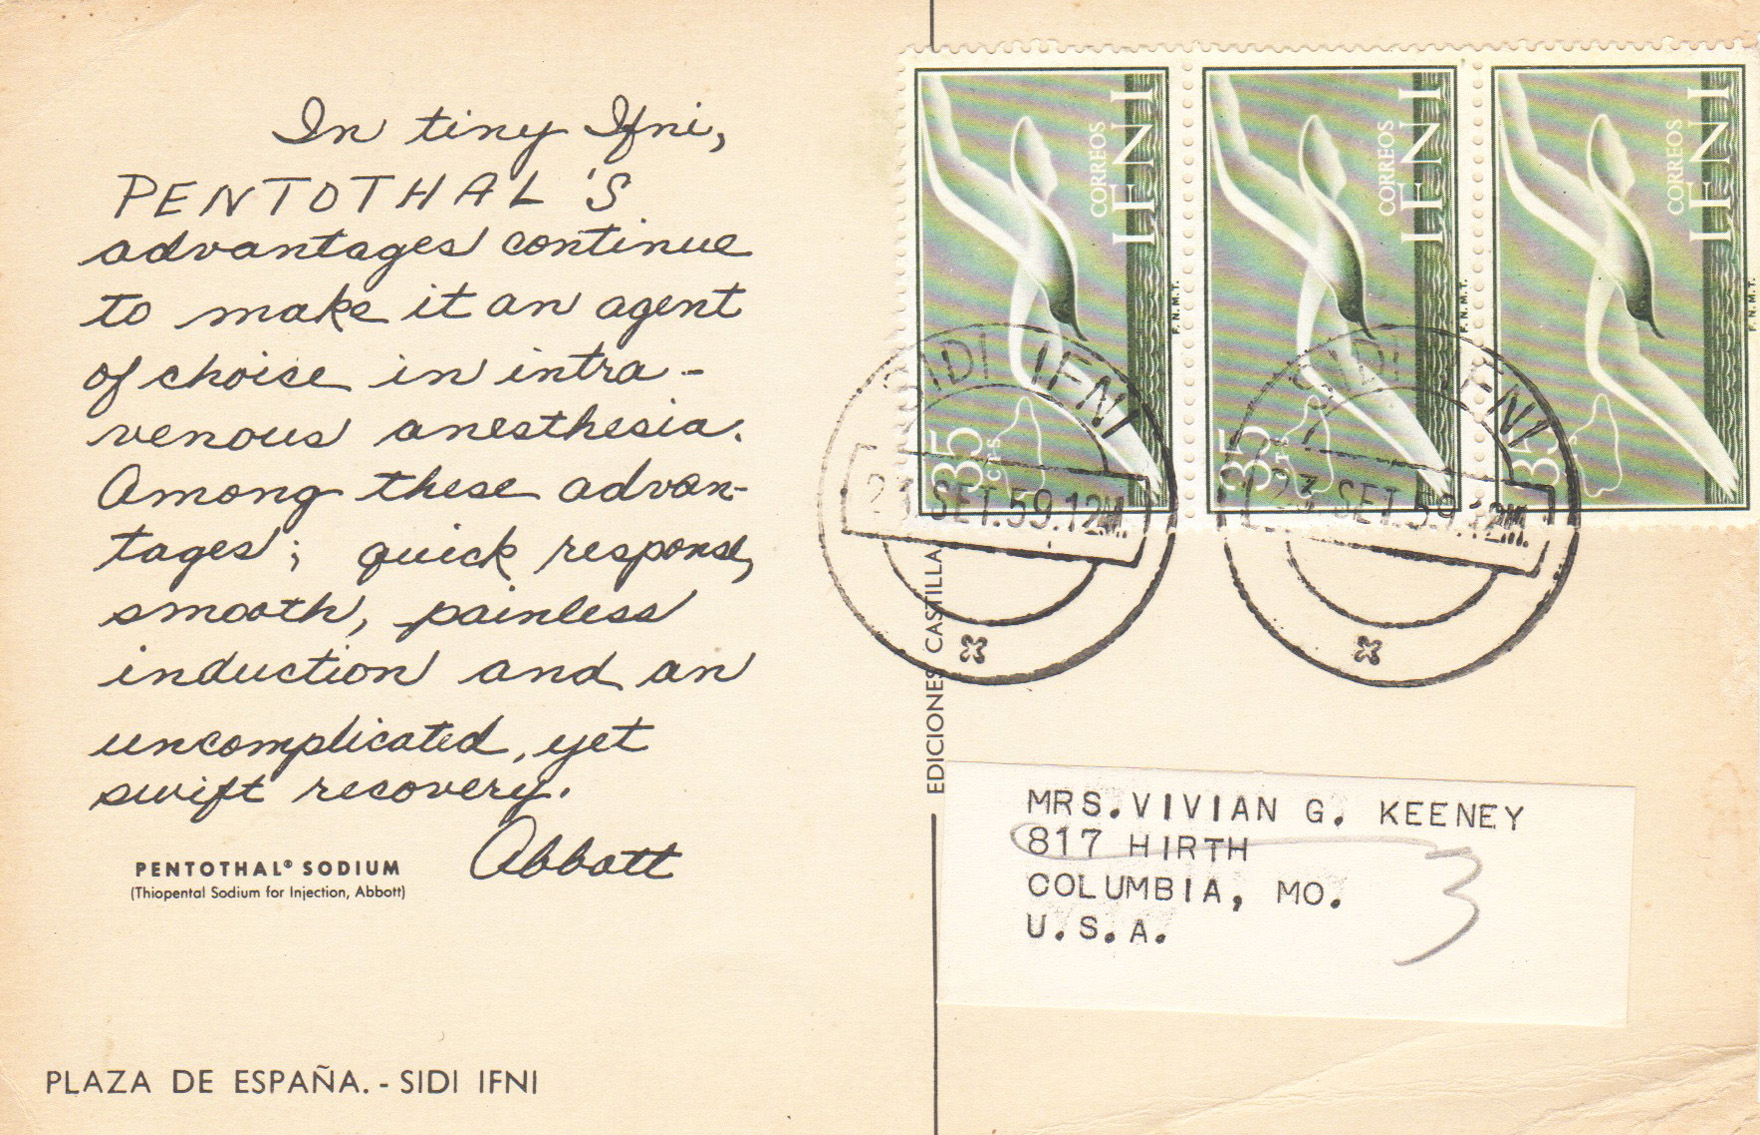 In tiny Ifni,
PENTOTHAL'S
advantages continue
to make it an agent
of choice in intra-
venous anesthesia.
Among these advan-
tages; quick response,
smooth, painless
induction and an
uncomplicated, yet
swift recovery.
Abbott
PENTOTHAL® SODIUM
(Thiopental Sodium for Injection, Abbott)
PLAZA DE ESPAÑA.- SIDI IFNI
EDICIONES CASTILLA
CORREOS
IFNI
35
CTS
F.N.M.T.
CORREOS
IFNI
35
CTS
F.N.M.T.
CORREOS
IFNI
35
F.N.M.T.
SIDI IFNI
23 SET.59.12M.
SIDI IFNI
23 SET.59.12M.
MRS.VIVIAN G. KEENEY
817 HIRTH
COLUMBIA, MO.
U.S.A.
3